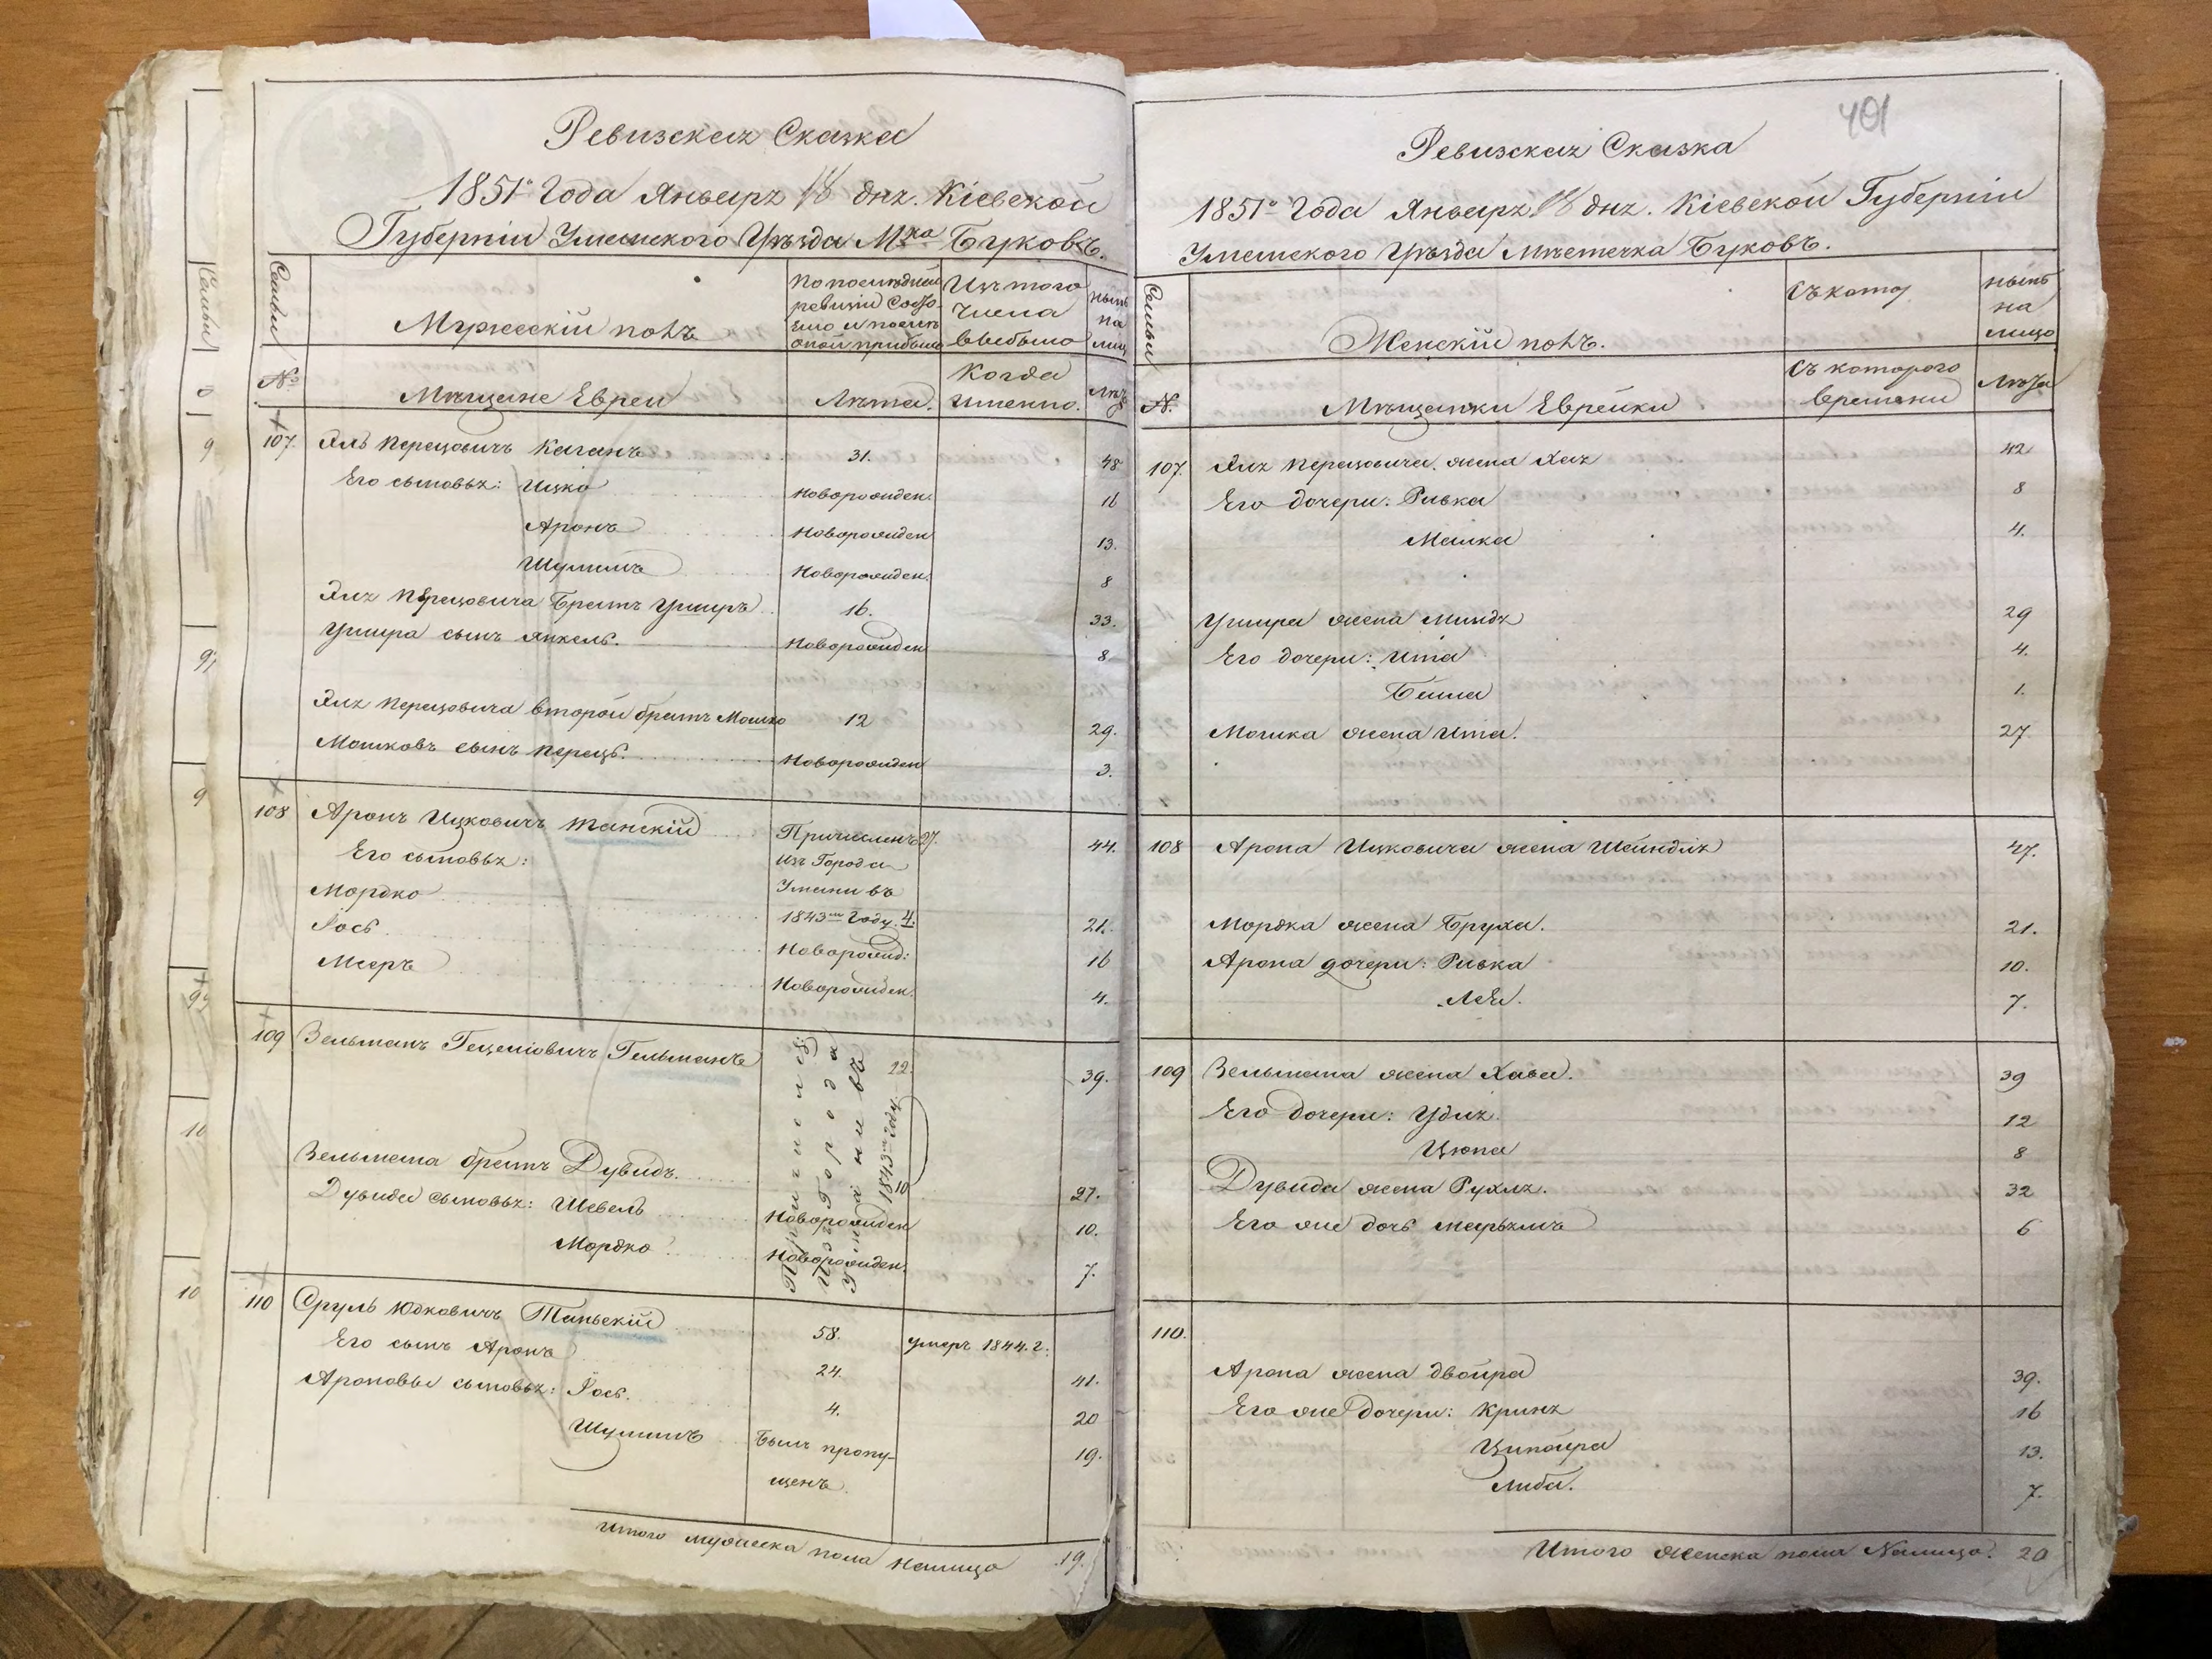 Ревизская Сказка
1851го Года Января 18 дня. Кіевской
Губерніи Уманского Уѣзда Мка Буковъ.
Семьи
Мужескій полъ
По последней
ревизіи Состо-
яло и после
оной прибыло
Изъ того
Числа
выбыло
ныне
на
лицо
№
Мѣщане Евреи
Лѣта.
Когда
именно.
Лѣта
107. Эль Перецовичъ Каганъ 31. 48
Его сыновья: Ицко Новорожден. 16
Аронъ Новорожден 13.
Шулимъ Новорожден. 8
Эля Перецовича Братъ Ушеръ 16. 33.
Ушера сынъ Янкель. Новорожден 8
Эля Перецовича второй братъ Мошко 12 29.
Мошковъ сынъ Перецъ. Новорожден 3.
108 Аронъ Ицковичъ Танскій Причисленъ 27. 44.
Его сыновья: изъ Города
Мордко Умани въ
1843м Году. 4. 21.
Іось Новорожд: 16
Мееръ Новорожден. 4.
109 Зельманъ Гецеліовичъ Гельманъ 22. 39.
Причислен:
Изъ Города
Умани въ
1843м Году
Зельмана братъ Дувидъ. 10 27.
Дувида сыновья: Шевель Новорожден 10.
Мордко Новорожден. 7.
110 Сруль Юдковичъ Таньскій 58. умеръ 1844.г.
Его сынъ Аронъ 24. 41.
Ароновы сыновья: Іось. 4. 20
Шулимъ Былъ пропу- 19.
щенъ.
Итого мужеска пола Налицо 19.
401
Ревизская Сказка
1851го Года Января 18 дня. Кіевской Губерніи
Уманского Уѣзда Мѣстечка Буковъ.
Семьи
Женскій полъ.
ныне
на
лицо
№
Мѣщанки Еврейки
Съ которого
времени
Лѣта
107. Эля Перецовича жена Хая 42
Его дочери: Ривка 8
Малка 4.
Ушера жена Миндя 29
Его дочери: Ита 4.
Бейла 1.
Мошка жена Ита. 27
108 Арона Ицковича жена Шейндля 47.
Мордка жена Бруха. 21.
Арона дочери: Ривка 10.
Лея. 7.
109 Зельмана жена Хава. 39
Его дочери: Удля. 12
Цюпа 8
Дувида жена Рухля. 32
Его же дочь Марьямъ 6
110.
Арона жена Двойра 39.
Его же дочери: Криня 16
Ципойра 13.
Либа. 7.
Итого женска пола Налицо. 20